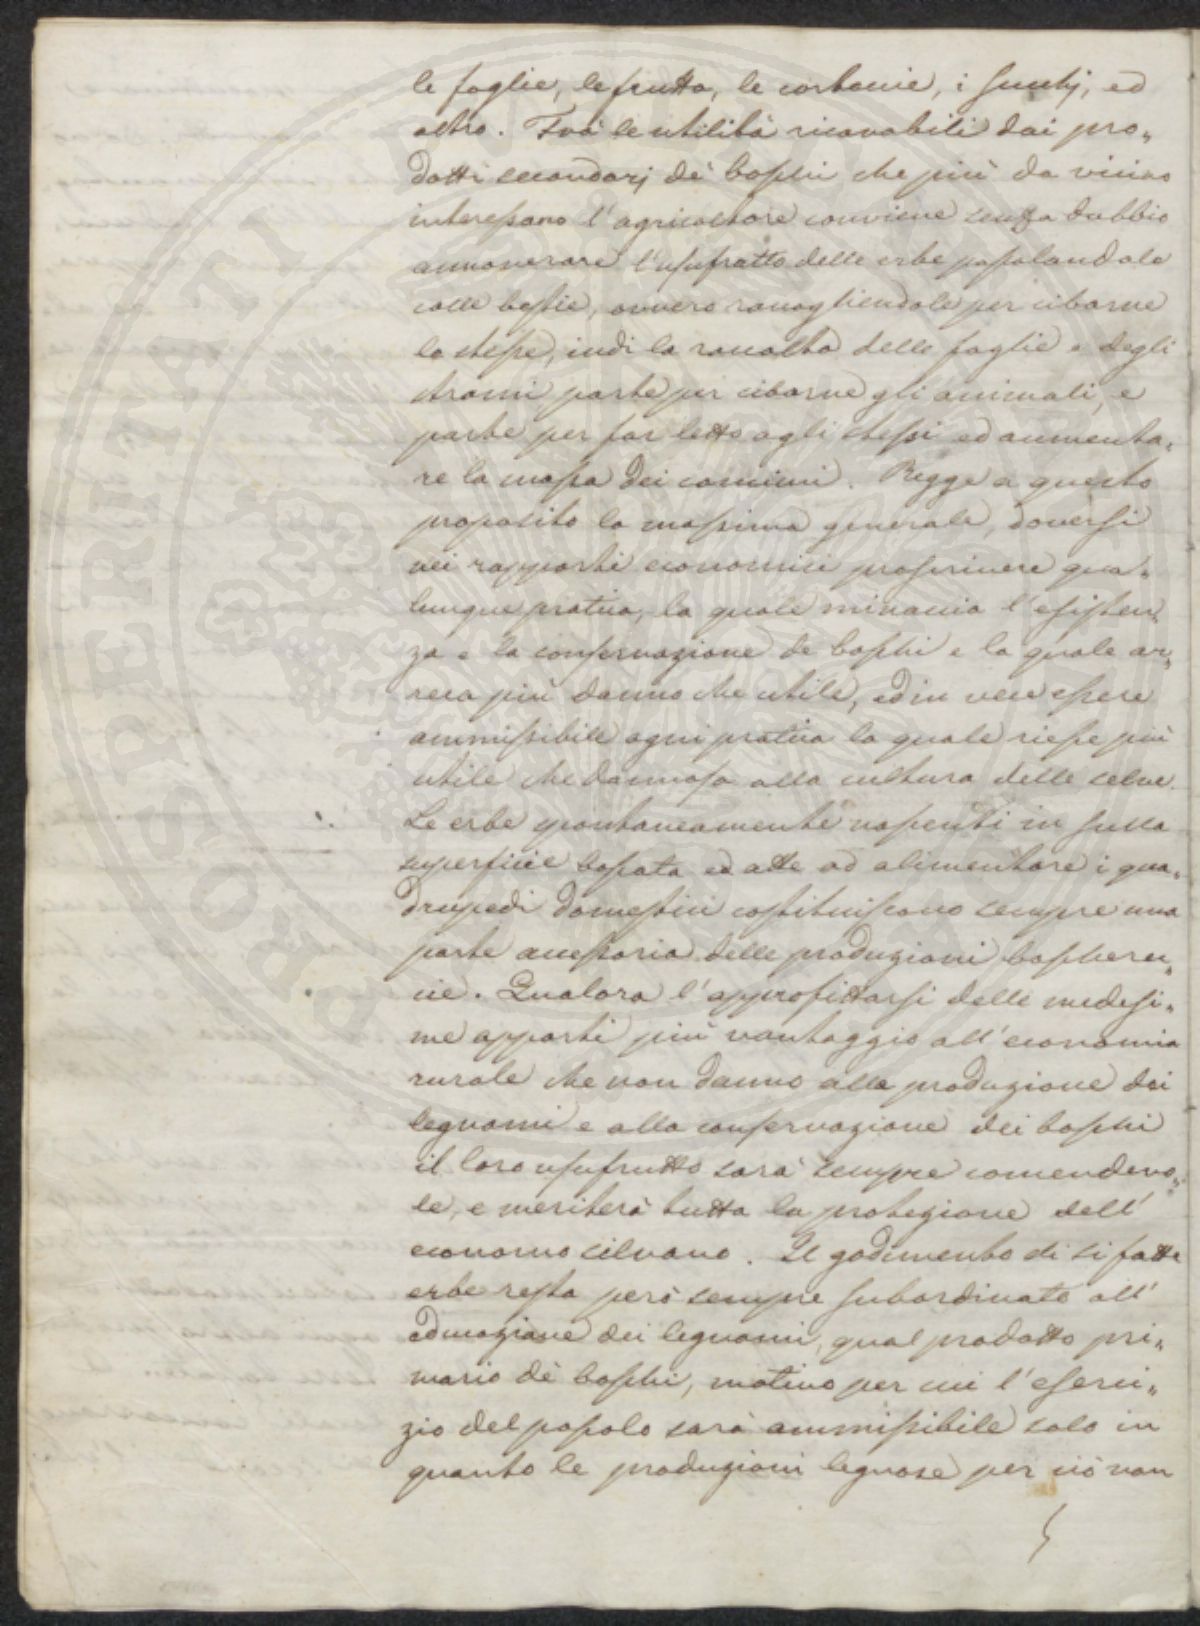 le foglie, le frutta, le cortecie, i funchj, ed
altro. Frà le utilità ricavabili dai pro„
dotti secondarj dè boschi che più da vicino
interessano l'agricoltore conviene senza dubbio
annoverare l'usufrutto delle erbe pasolandole
colle bestie, ovvero raccogliendole per cibarne
le stesse, indi la raccolta delle foglie e degli
strami parte per cibarne gli animali, e
parte per far letto agli stessi ed aumenta„
re la massa dei concimi. Regge a questo
proposito la massima generale, doversi
nei rapporti economici proscrivere qua„
lunque pratica, la quale minaccia l'esisten„
za e la conservazione de boschi e la quale ar„
reca più danno che utile, ed in vece essere
ammissibile ogni pratica la quale riesce più
utile che dannosa alla cultura delle selve.
Le erbe spontaneamente nascenti in sulla
superficie boscata ed atte ad alimentare i qua„
drupedi domestici costituiscono sempre una
parte accessoria delle produzioni boscherec„
cie. Qualora l'approfittarsi delle medesi„
me apporti più vantaggio all'economia
rurale che non danno alla produzione dei
legnami e alla conservazione dei boschi
il loro usufrutto sarà sempre comendevo„
le, e meriterà tutta la protezione dell'
economo silvano. Il godimento di si fatte
erbe resta però sempre subordinato all'
educazione dei legnami, qual prodotto pri„
mario dè boschi, motivo per cui l'eserci„
zio del pascolo sarà ammissibile solo in
quanto le produzioni legnose per ciò non
PROSPERITATI PUBLICAE